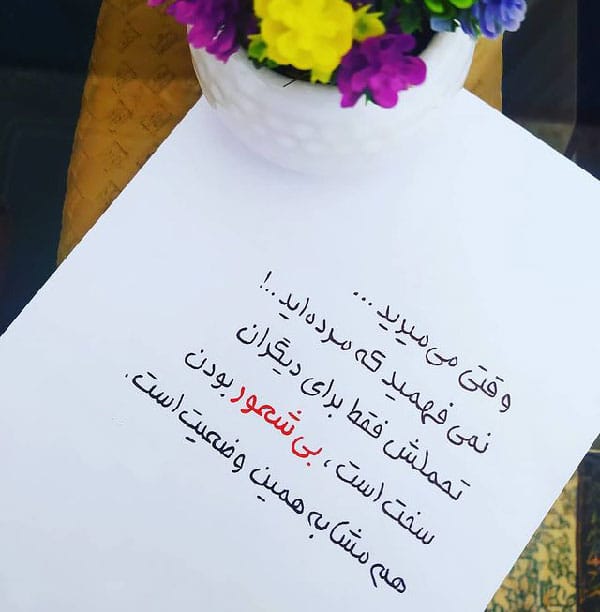 وقتی می‌میرید ...
نمی فهمید که مرده‌اید ..!
تحملش فقط برای دیگران
سخت است ، بی شعور بودن
هم مشابه همین وضعیت است .